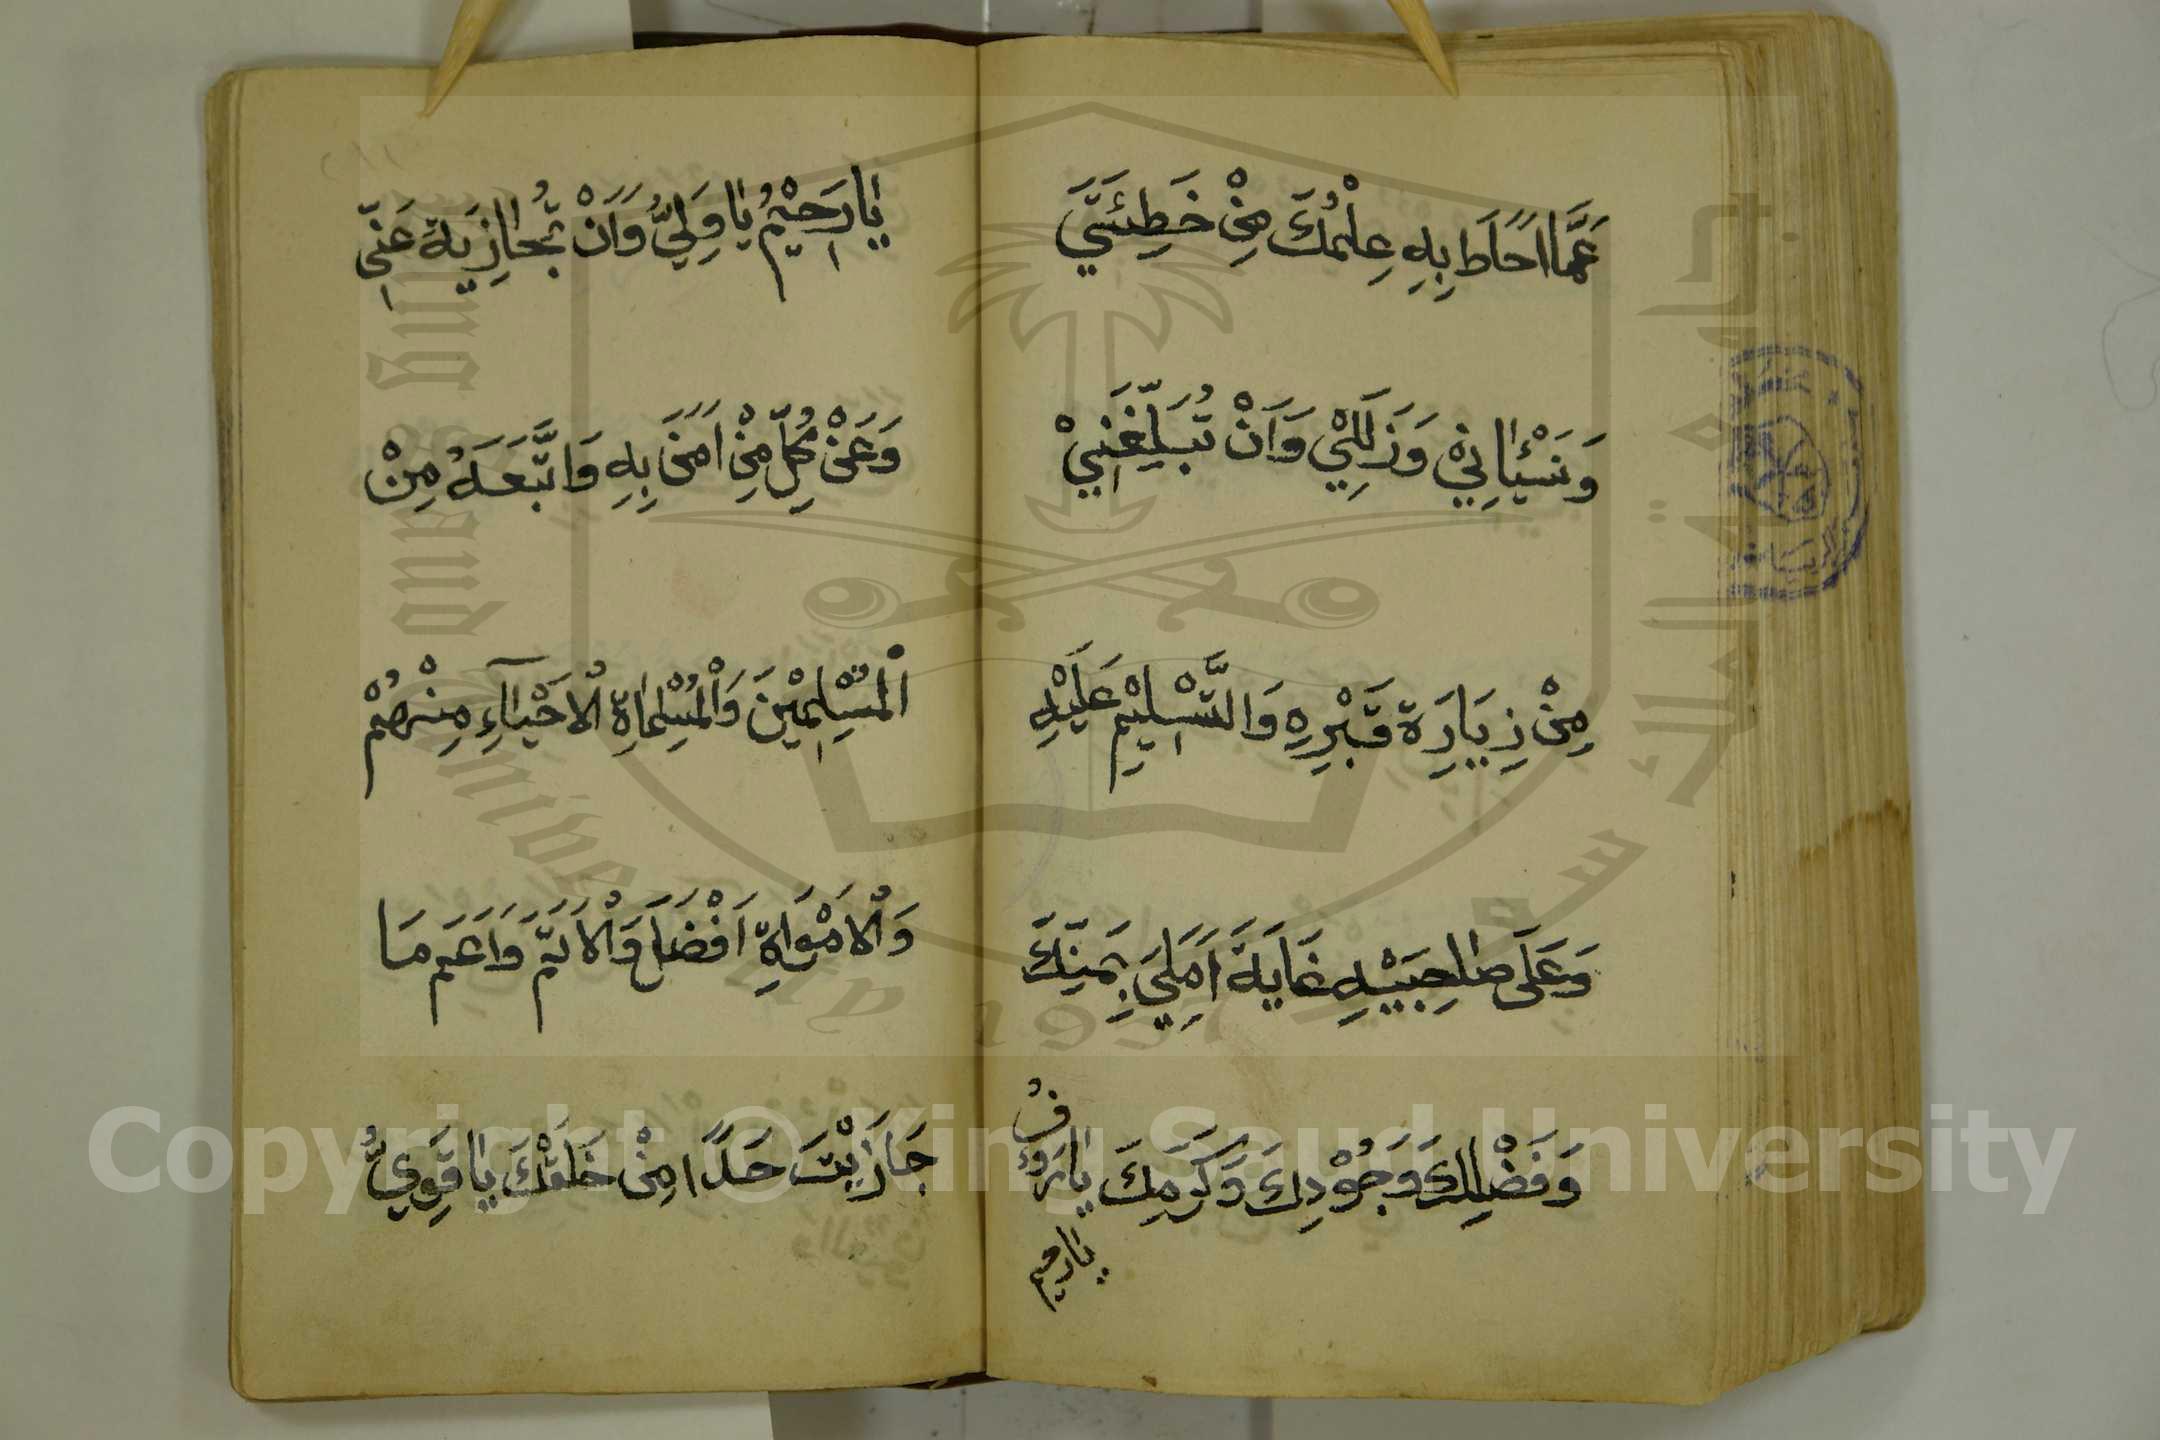 عَمَّا اَحَاطَ بِهِ عِلْمُكَ مِنْ خَطِئَتَيَّ
وَنَسْيٰانِيْ وَزَلَلِيْ وَاَنْ تُبَلِّغَنِيْ
مِنْ زِيَارَةِ قَبْرِهِ وَالتَّسْلِيْمِ عَلَيْهِ
وَعَلَى صٰاحِبَيْهِ غَايَةَ اَمَلِيَ بِمَنِّكَ
وَفَضْلِكَ وَجُوْدِكَ وَكَرَمِكَ يٰارَؤُفُ
يارحيم
يٰارَحِيْمُ يٰاوَلِيُّ وَاَنْ تُجٰازِيَهُ عَنِّي
وَعَنْ كُلِّ مِنْ اَمَنَ بِهِ وَاتَّبَعَهُ مِنْ
الْمُسْلِمِيْنَ وَالْمُسْلِمٰاةِ الْاَحْيٰآءِ مِنْهُمْ
وَالْاَمْوَاةِ اَفْضَلَ وَالْاَتَمَّ وَاَعَمَ مَا
جَازَيْتَ حَدًا مِنْ خَلْقِكَ يٰاقَوِيُّ
Copyright © King Saud University